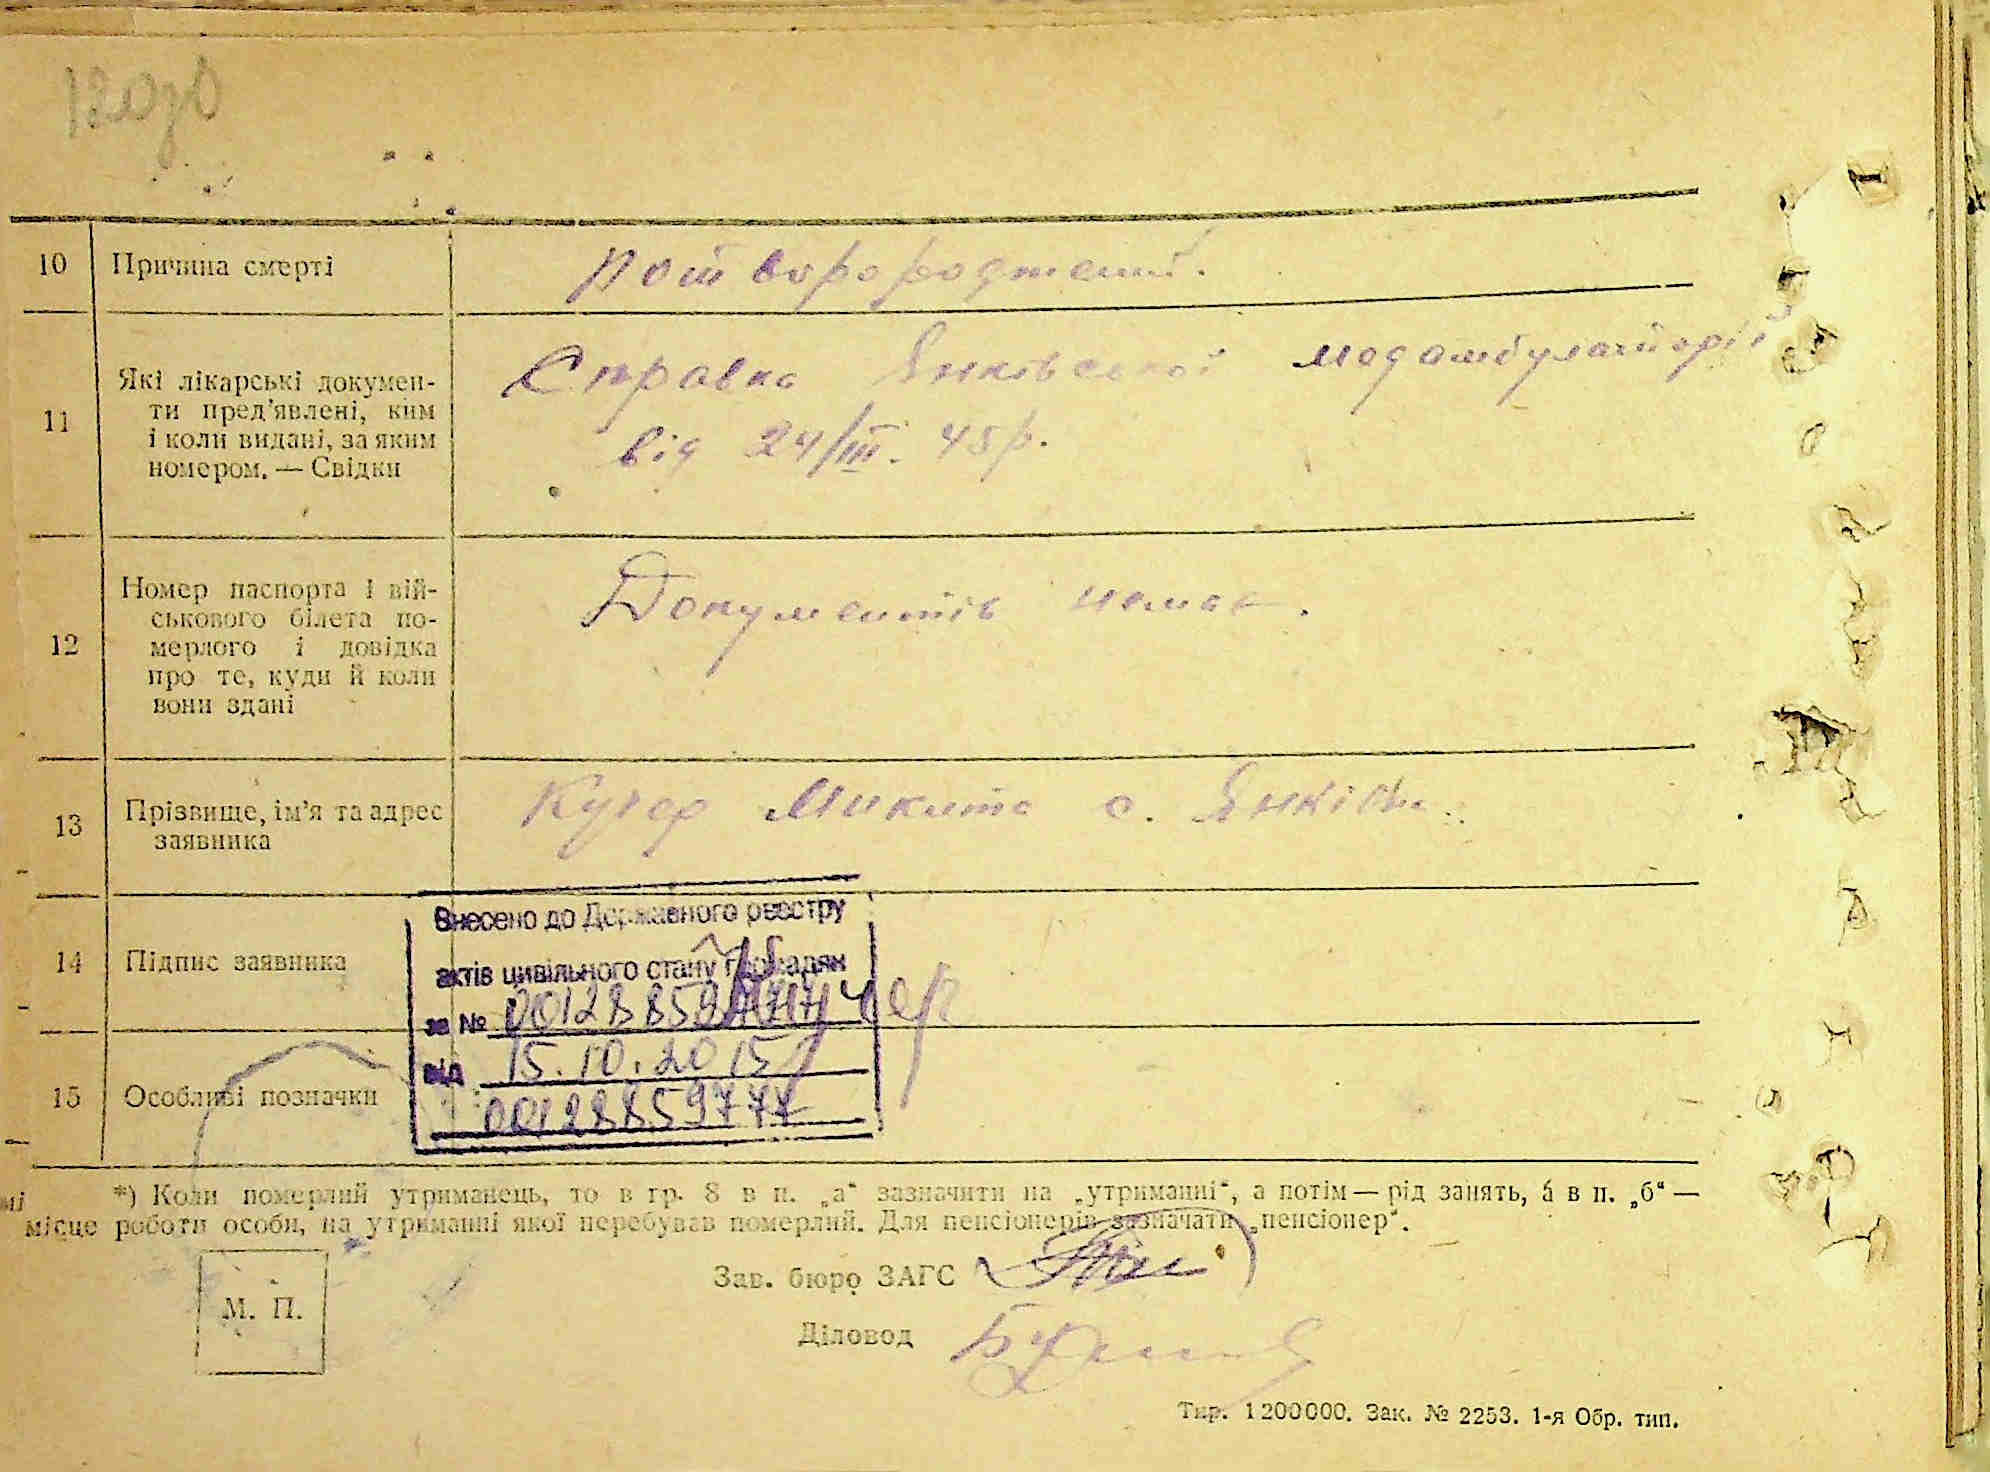 10 Причина смерті
11 Які лікарські докумен-
ти пред'явлені, ким
і коли видані, за яким
номером. — Свідки
Справка Янківської медамбулаторії
від 24/III. 45 р.
12 Номер паспорта і вій-
ськового білета по-
мерлого і довідка
про те, куди й коли
вони здані
Документів немає.
13 Прізвище, ім'я та адрес
заявника
Кучер Микита с. Янківка.
14 Підпис заявника
Кучер
15 Особливі позначки
Внесено до Державного реєстру
актів цивільного стану громадян
за №
від 15.10.2015
00128859777
*) Коли померлий утриманець, то в гр. 8 в п. „а“ зазначити на „утриманні“, а потім — рід занять, а в п. „б“ —
місце роботи особи, на утриманні якої перебував померлий. Для пенсіонерів зазначати „пенсіонер“.
М. П.
Зав. бюро ЗАГС
Діловод
Тир. 1200000. Зак. № 2253. 1-я Обр. тип.